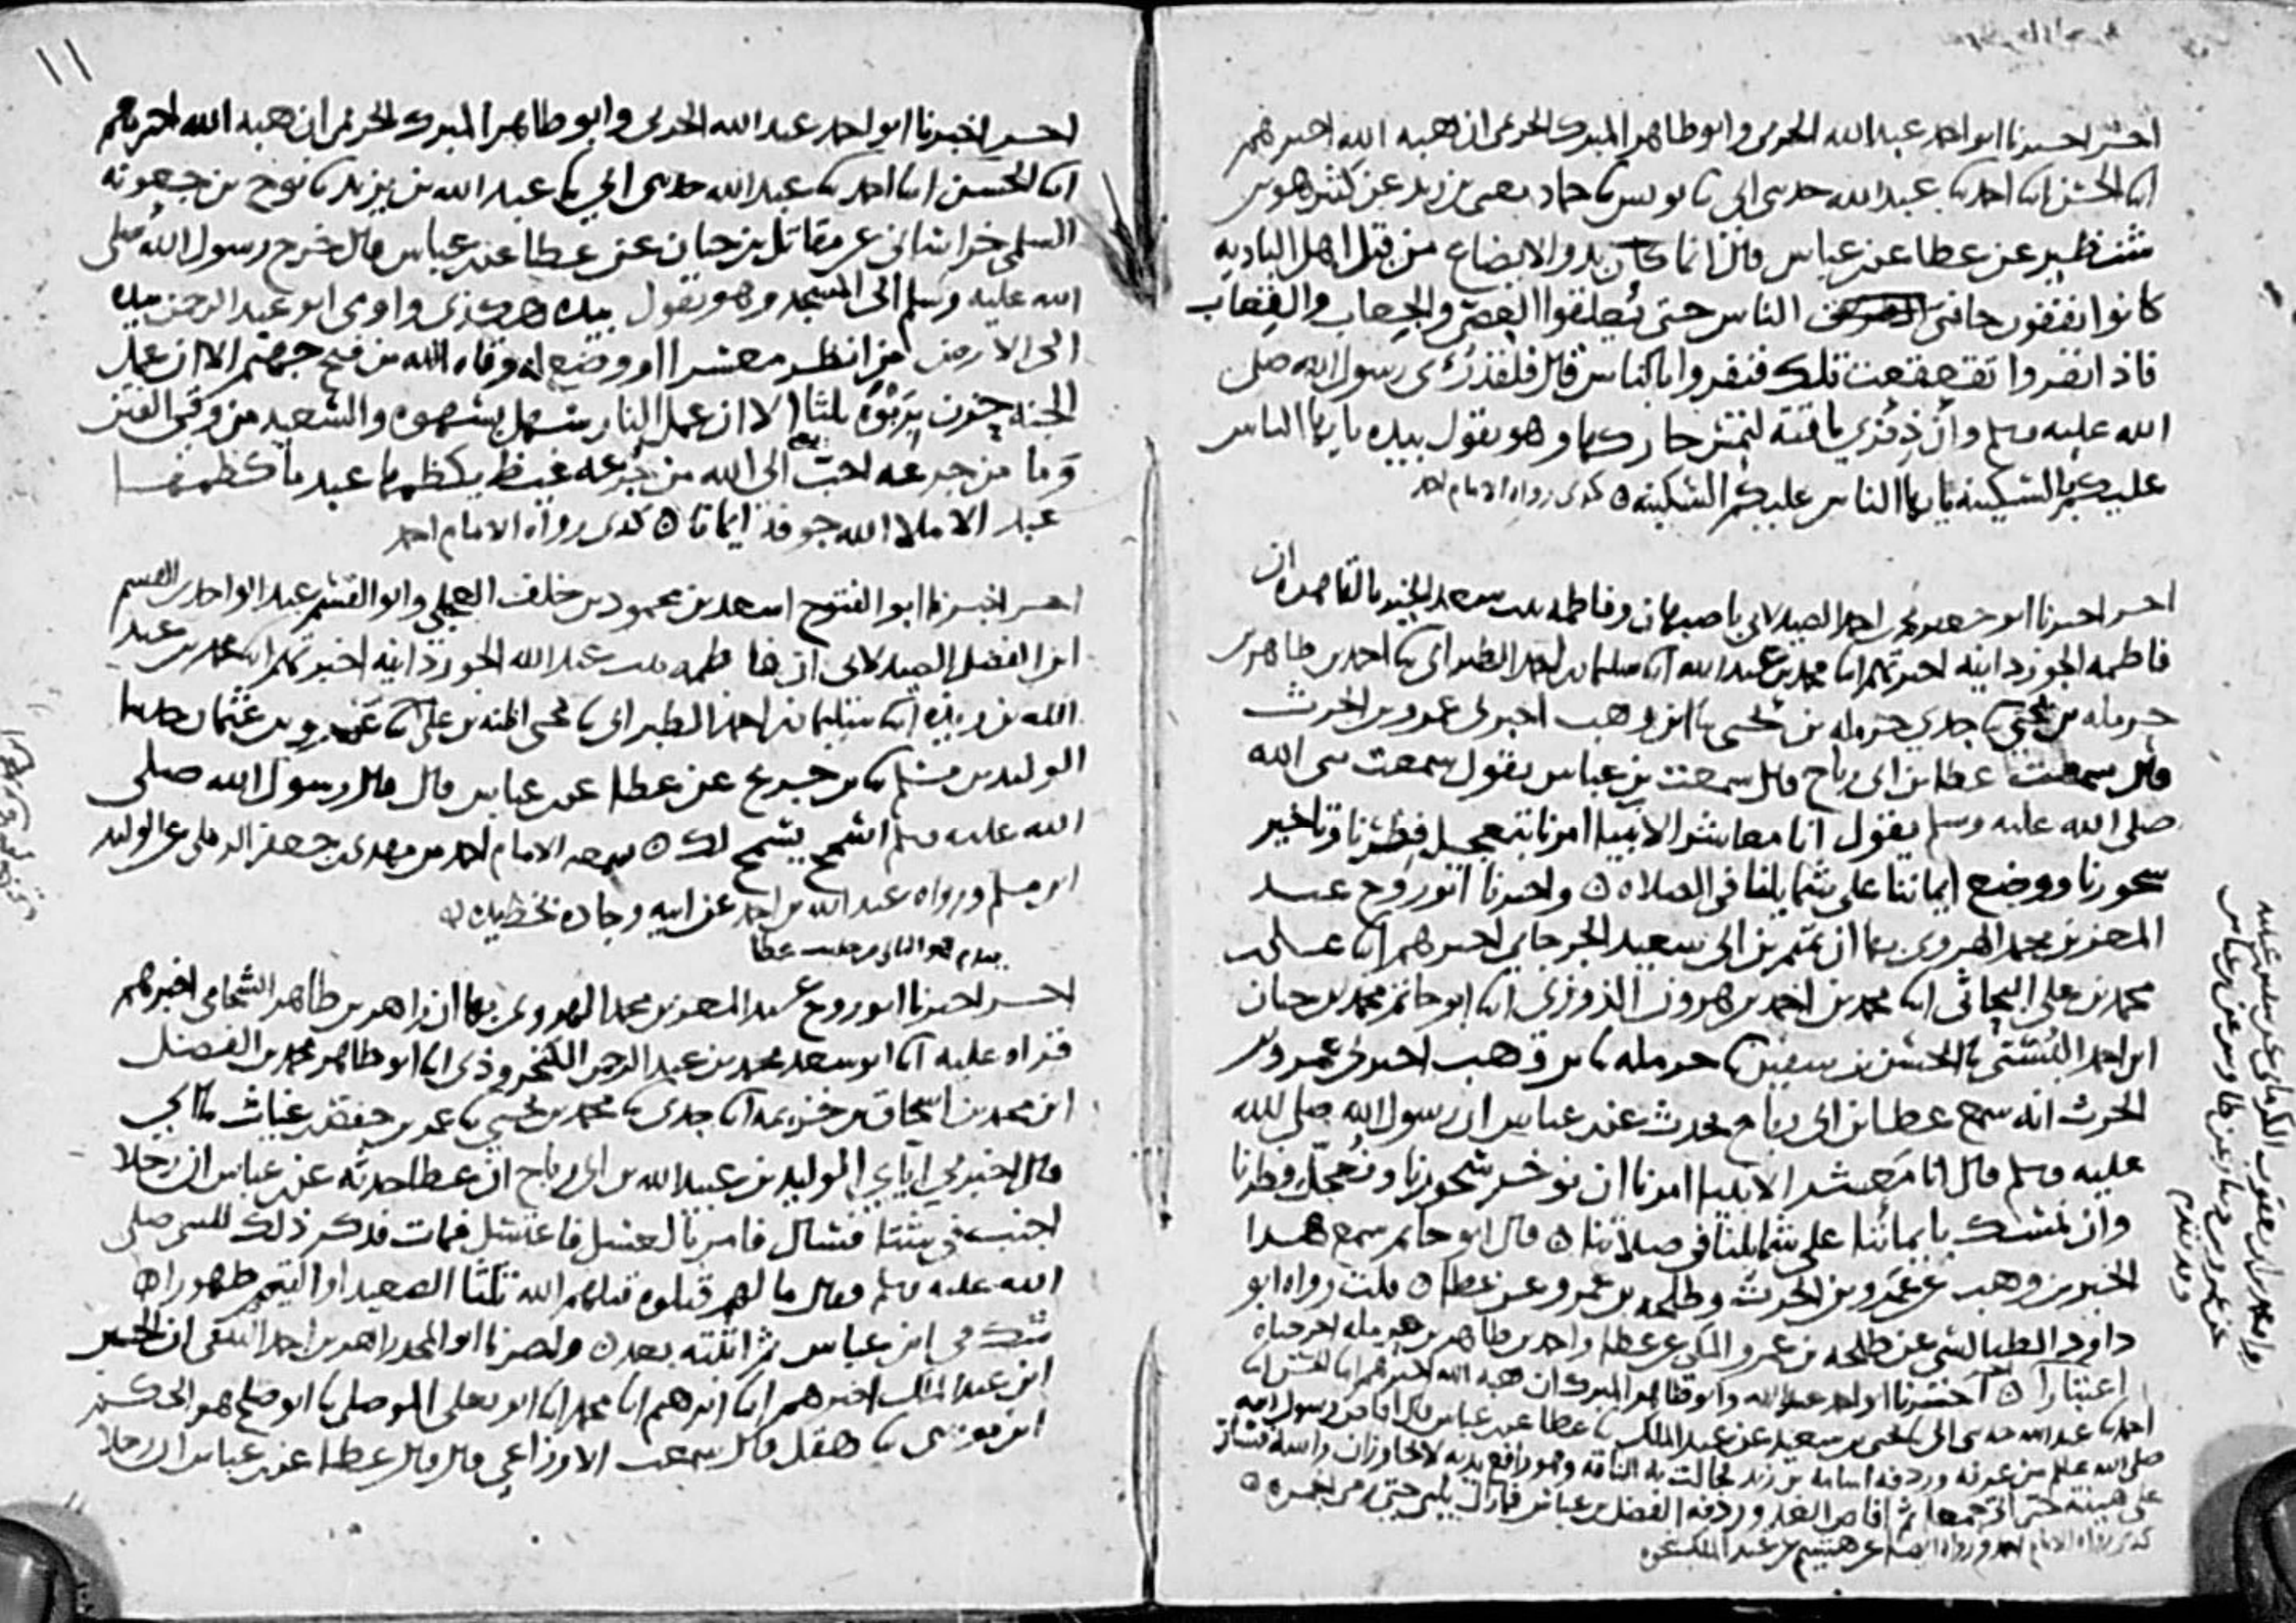 اخبرنا ابو احمد عبد الله الحربي وابو طاهر المبرك الحريمي ان هبه الله اخبرهم
ابنا الحسن ابنا احمد نا عبد الله حدثني ابي نا يونس نا حماد يعني بن زيد عن كثير هو بن
شنظير عن عطا عن بن عباس قال انما كان بدو الايضاع من قبل اهل الباديه
كانوا يقفون حافتي الناس حتى يعلقوا العصي والجعاب والقعاب
فاذا نفروا تقعقعت تلك فنفروا بالناس قال فلقد رئي رسول الله صلى
الله عليه وسلم وان ذفري ناقته لتمس حاركها وهو يقول بيده يا يها الناس
عليكم بالسكينه يا يها الناس عليكم السكينه كذى رواه الامام احمد
اخبرنا ابو جعفر محمد بن احمد الصيدلاني باصبهان وفاطمه بنت سعد الخير بالقاهره ان
فاطمه الجوزدانيه اخبرتهم ابنا محمد بن عبد الله ابنا سليمان بن احمد الطبراني نا احمد بن طاهر بن
حرمله بن يحيى نا جدي حرمله بن يحيى نا ابن وهب اخبرني عمرو بن الحرث
قال سمعت عطا بن ابي رباح قال سمعت بن عباس يقول سمعت نبي الله
صلى الله عليه وسلم يقول انا معاشر الانبيا امرنا بتعجيل فطرنا وتاخير
سحورنا ووضع ايماننا على شمايلنا في الصلاه واخبرنا ابو روح عبد
المعز بن محمد الهروي بها ان تميم بن ابي سعيد الجرجاني اخبرهم ابنا علي بن
محمد بن علي البحاثي ابنا محمد بن احمد بن هرون الزوزني ابنا ابو حاتم محمد بن حبان
ابن احمد البستي نا الحسن بن سفين نا حرمله نا بن وهب اخبرني عمرو بن
الحرث انه سمع عطا بن ابي رباح يحدث عن بن عباس ان رسول الله صلى الله
عليه وسلم قال انا معشر الانبيا امرنا ان نوخر سحورنا ونعجل فطرنا
وان نمسك بايماننا على شمايلنا في صلاتنا قال ابو حاتم سمع هذا
الخبر بن وهب عن عمرو بن الحرث وطلحه بن عمرو عن عطا قلت رواه ابو
داود الطيالسي عن طلحه بن عمرو المكي عن عطا واحمد بن طاهر بن حرمله اخرجناه
اعتبارا اخبرنا ابو احمد عبد الله وابو طاهر المبرك ان هبه الله اخبرهم ابنا الحسن ابنا
احمد نا عبد الله حدثني ابي نا يحيى بن سعيد عن عبد الملك نا عطا عن بن عباس قال افاض رسول الله
صلى الله عليه وسلم من عرفه وردفه اسامه بن زيد فجالت به الناقه وهو رافع يديه لا تجاوزان راسه فسار
على هينته حتى اتى جمعا ثم افاض الغد وردفه الفضل بن عباس فما زال يلبي حتى رمى الجمره
كذى رواه الامام احمد ورواه ايضا عن هشيم عن عبد الملك بنحوه
عن عمرو بن دينار عن طاوس عن بن عباس
وقد تقدم
١١
اخبرنا ابو احمد عبد الله الحربي وابو طاهر المبرك الحريمي ان هبه الله اخبرهم
ابنا الحسن ابنا احمد نا عبد الله حدثني ابي نا عبد الله بن يزيد نا نوح بن جعونه
السلمي خراساني عن مقاتل بن حيان عن عطا عن بن عباس قال خرج رسول الله صلى
الله عليه وسلم الى المسجد وهو يقول بيده هكذى واومى ابو عبد الرحمن بيده
الى الارض من انظر معسرا او وضع له وقاه الله من فيح جهنم الا ان عمل
الجنه حزن بربوه ثلثا الا ان عمل النار سهل بشهوه والسعيد من وقي الفتن
وما من جرعه احب الى الله من جرعه غيظ يكظمها عبد ما كظمها
عبد الا ملا الله جوفه ايمانا كذى رواه الامام احمد
اخبرنا ابو الفتوح اسعد بن محمود بن خلف العجلي وابو القسم عبد الواحد بن القسم
ابن الفضل الصيدلاني ان فاطمه بنت عبد الله الجوزدانيه اخبرتهم ابنا محمد بن عبد
الله بن ريذه ابنا سليمان بن احمد الطبراني نا يحيى بن علي نا عمرو بن عثمان حدثنا
الوليد بن مسلم نا بن جريج عن عطا عن بن عباس قال قال رسول الله صلى
الله عليه وسلم اسمح يسمح لك سمعه الامام احمد من مهدي بن جعفر الرملي عن الوليد
ابن مسلم ورواه عبد الله بن احمد عن ابيه وجاده بخط يده
اخبرنا ابو روح عبد المعز بن محمد الهروي بها ان زاهر بن طاهر الشحامي اخبرهم
قراه عليه ابنا ابو سعد محمد بن عبد الرحمن الكنجروذي ابنا ابو طاهر محمد بن الفضل
ابن محمد بن اسحاق بن خزيمه ابنا جدي نا محمد بن يحيى نا عمر بن حفص بن غياث نا ابي
قال اخبرني الوليد بن عبيد الله بن ابي رباح ان عطا حدثه عن بن عباس ان رجلا
اجنب في شتا فسال فامر بالغسل فاغتسل فمات فذكر ذلك للنبي صلى
الله عليه وسلم فقال ما لهم قتلوه قتلهم الله ثلثا الصعيد او التيمم طهورا
شك في ابن عباس ثم اثبته بعد واخبرنا ابو المجد زاهر بن احمد الثقفي ان الحسين
ابن عبد الملك اخبرهم ابنا ابرهيم ابنا محمد ابنا ابو يعلى الموصلي نا ابو صلح هو الحكم
ابن موسى نا هقل قال سمعت الاوزاعي قال قال عطا عن بن عباس ان رجلا